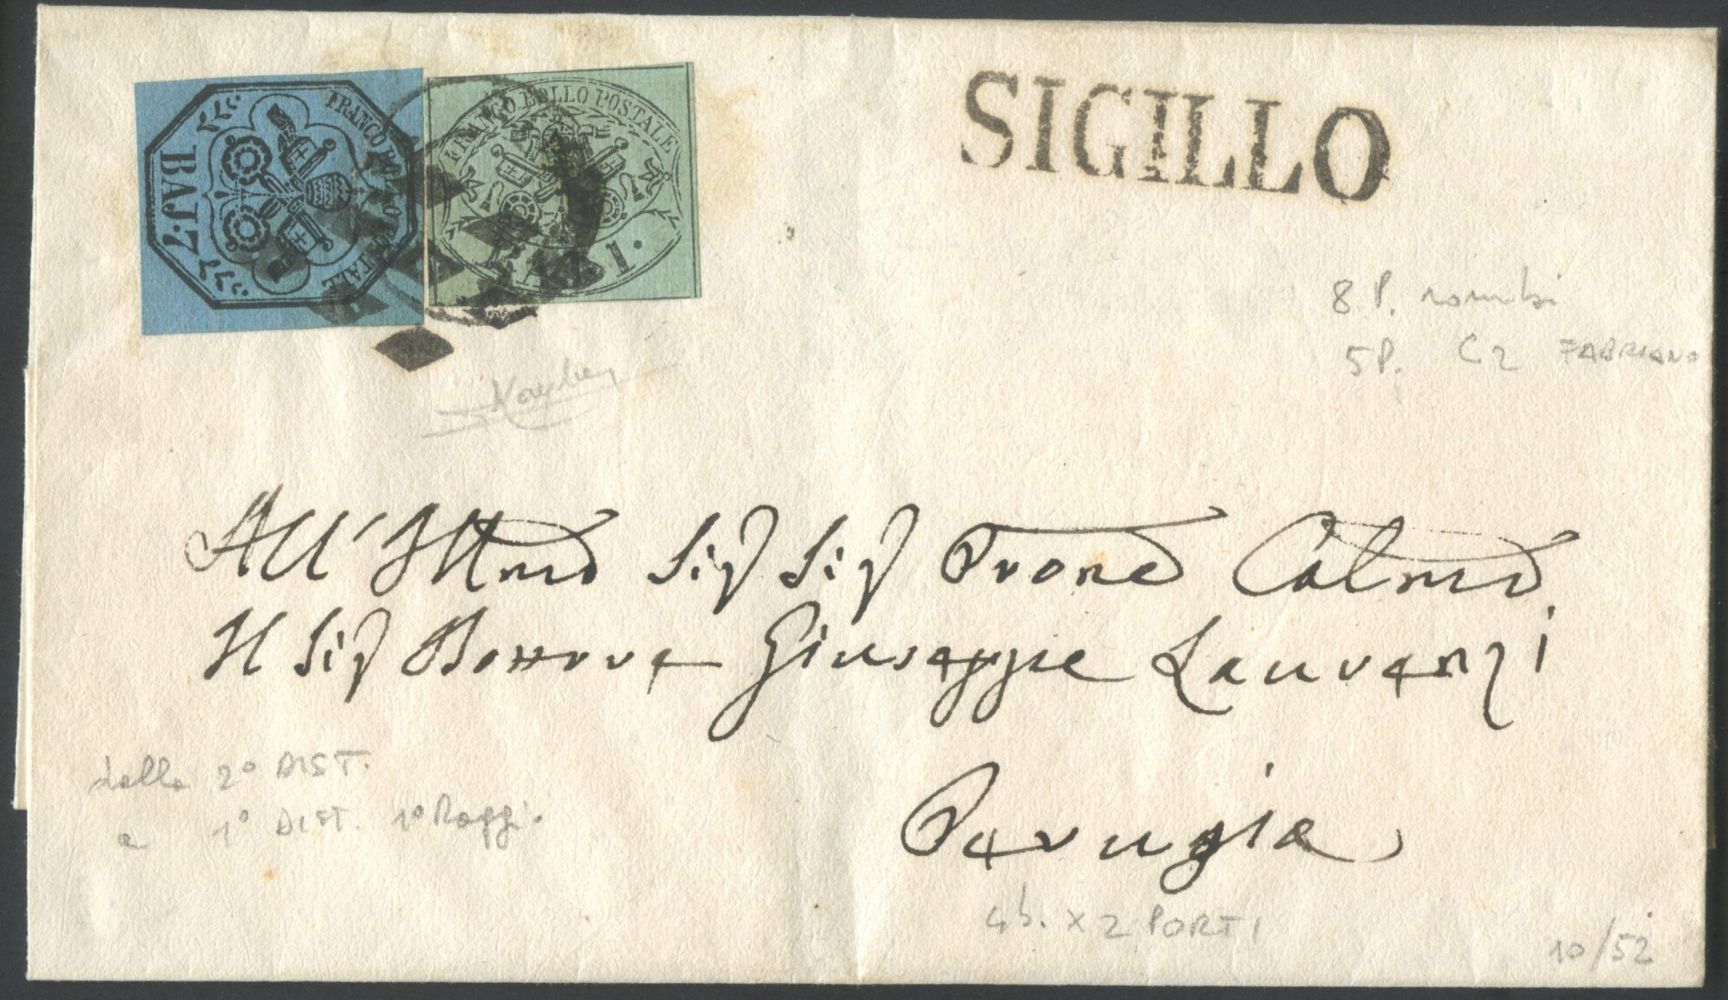 FRANCO BOLLO POSTALE
BAJ. 7
FRANCO BOLLO POSTALE
1.
SIGILLO
8 P. rombi
5 P. C2 FABRIANO
All' Illmo Sig Sig Prone Colmo
Il Sig Giuseppe Laurenzi
Perugia
dalla 2° DIST.
a 1° DIST. 1° Raggi.
4 b. x 2 PORTI
10/52